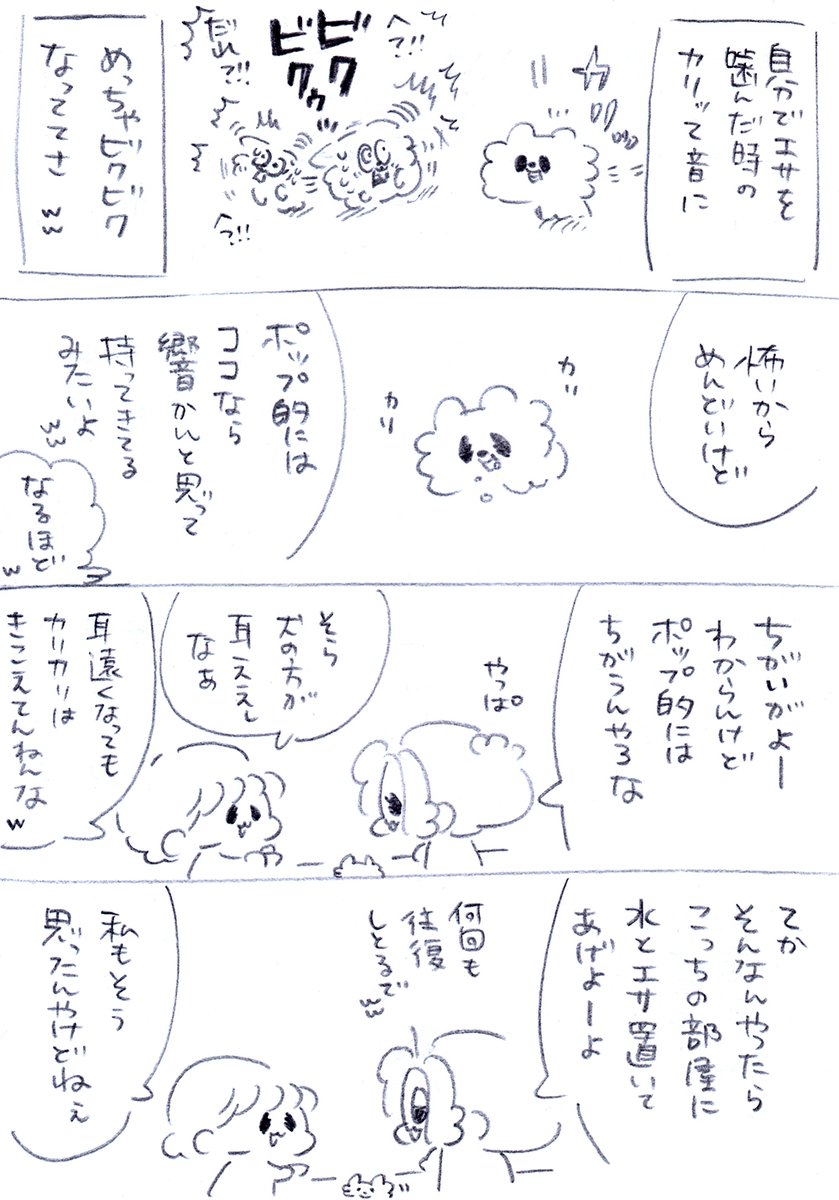 自分でエサを
噛んだ時の
カリッて音に
カリッ
ビビ
クウ
クッ
へ?!!
だれ?!!
へ?!!
めっちゃビクビク
なっててさ ww
怖いから
めんどいけど
カリ
カリ
ポップ的には
ココなら
響かんと思って
持ってきてる
みたいよ
ww
なるほど
w
ちがいがよー
わからんけど
ポップ的には
ちがうんやろな
やっぱ
そら
犬の方が
耳ええし
なあ
耳遠くなっても
カリカリは
きこえてんねんな
w
てか
そんなんやったら
こっちの部屋に
水とエサ置いて
あげよーよ
何回も
往復
しとるで
ww
私もそう
思ったんやけどねぇ